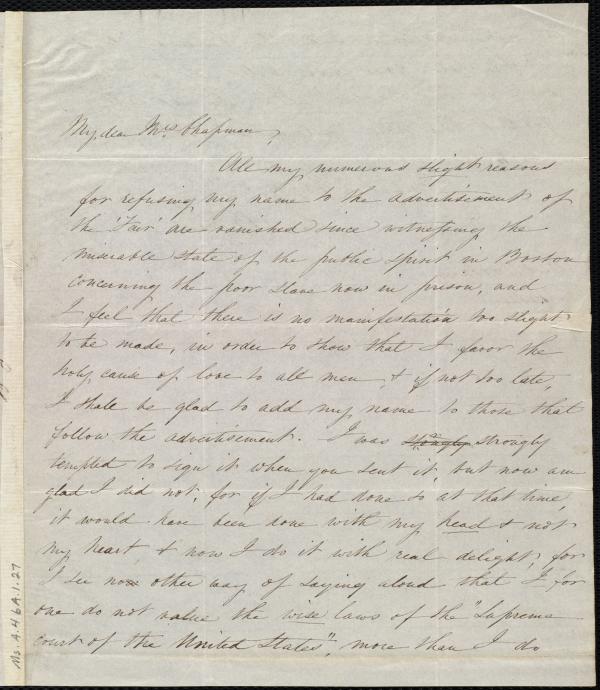 My dear Mrs Chapman,
All my numerous slight reasons
for refusing my name to the advertisement of
the 'Fair' are vanished since witnessing the
miserable state of the public spirit in Boston
concerning the poor slave now in prison, and
I feel that there is no manifestation too slight
to be made, in order to show that I favor the
holy cause of love to all men, & if not too late,
I shall be glad to add my name to those that
follow the advertisement. I was strongly strongly
tempted to sign it when you sent it, but now am
glad I did not, for if I had done so at that time,
it would have been done with my head & not
my heart, & now I do it with real delight, for
I see no other way of saying aloud that I for
one do not value the wise laws of the "Supreme
court of the United States", more than I do
Ms. A.4 6A.1.27